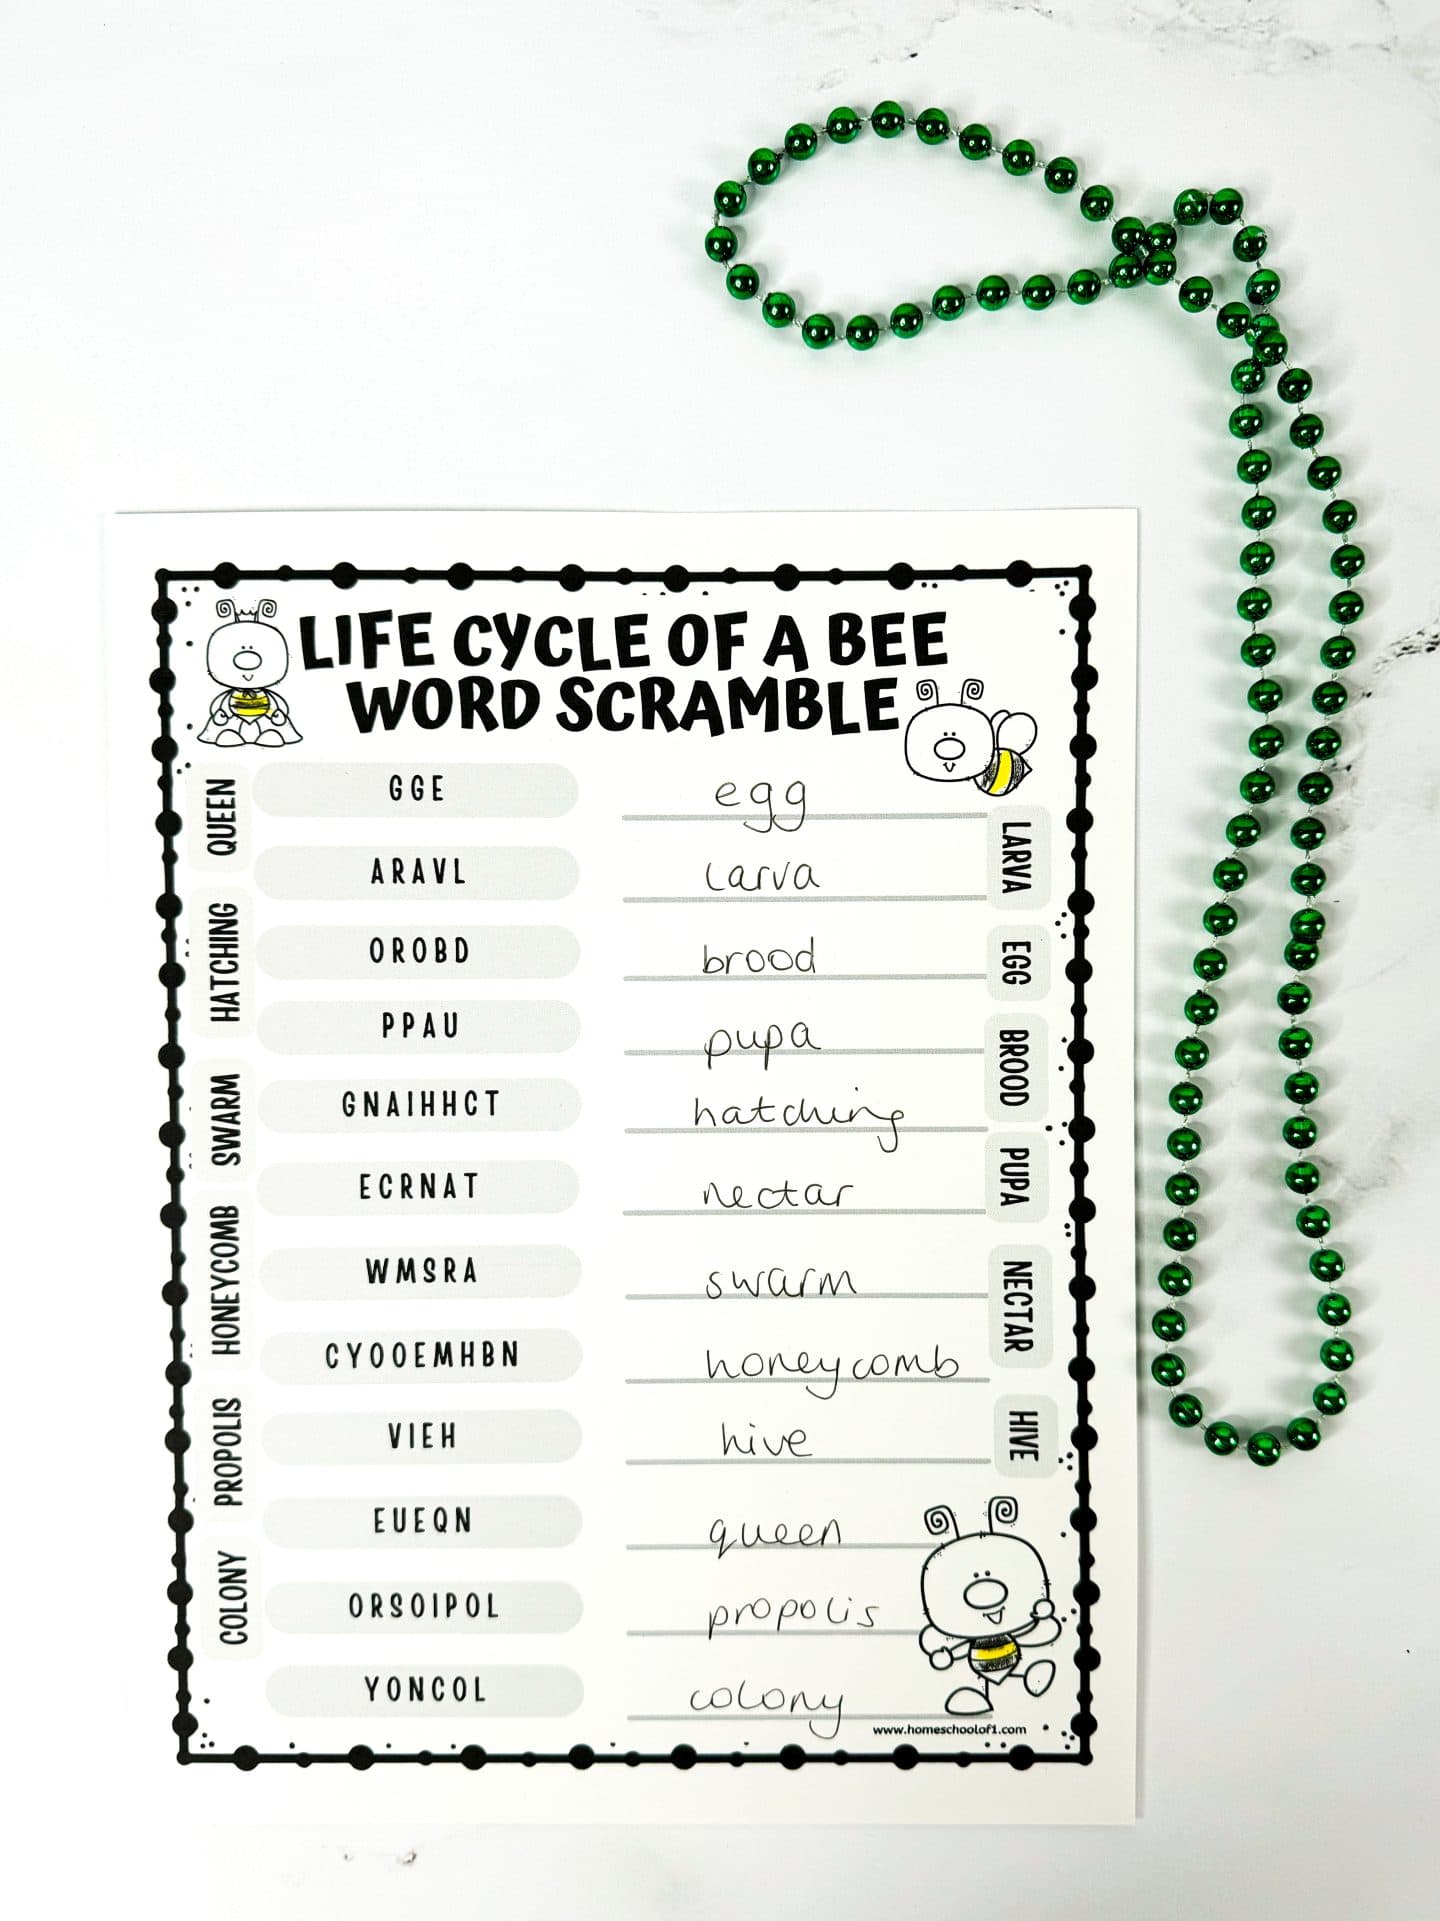 LIFE CYCLE OF A BEE
WORD SCRAMBLE
GGE egg
ARAVL larva
OROBD brood
PPAU pupa
GNAIHHCT hatching
ECRNAT nectar
WMSRA swarm
CYOOEMHBN honeycomb
VIEH hive
EUEQN queen
ORSOIPOL propolis
YONCOL colony
QUEEN
HATCHING
SWARM
HONEYCOMB
PROPOLIS
COLONY
LARVA
EGG
BROOD
PUPA
NECTAR
HIVE
www.homeschoolof1.com